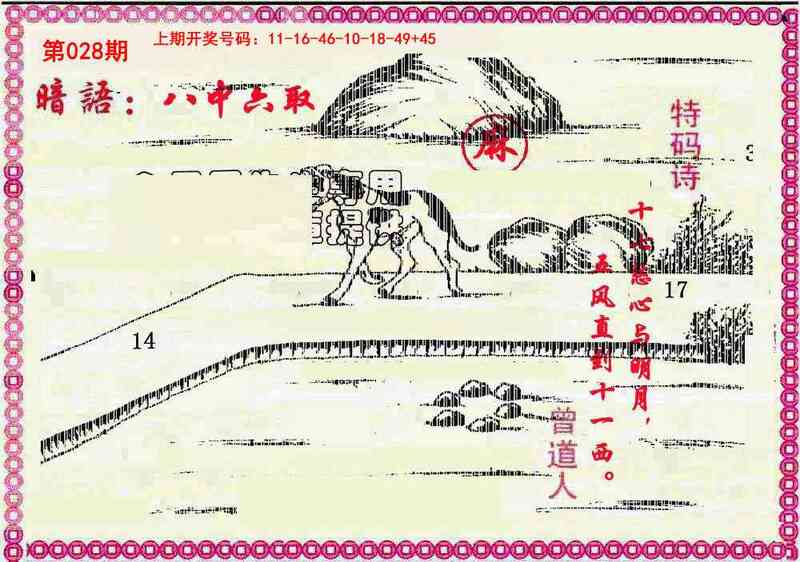 第028期
上期开奖号码：11-16-46-10-18-49+45
暗語：八中六取
麻
特码诗
十七慈心与明月，
五风直到十一西。
曾道人
14
17